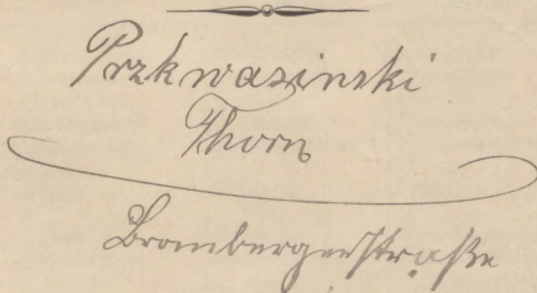 Przkwasinski
Thorn
Brombergerstraße